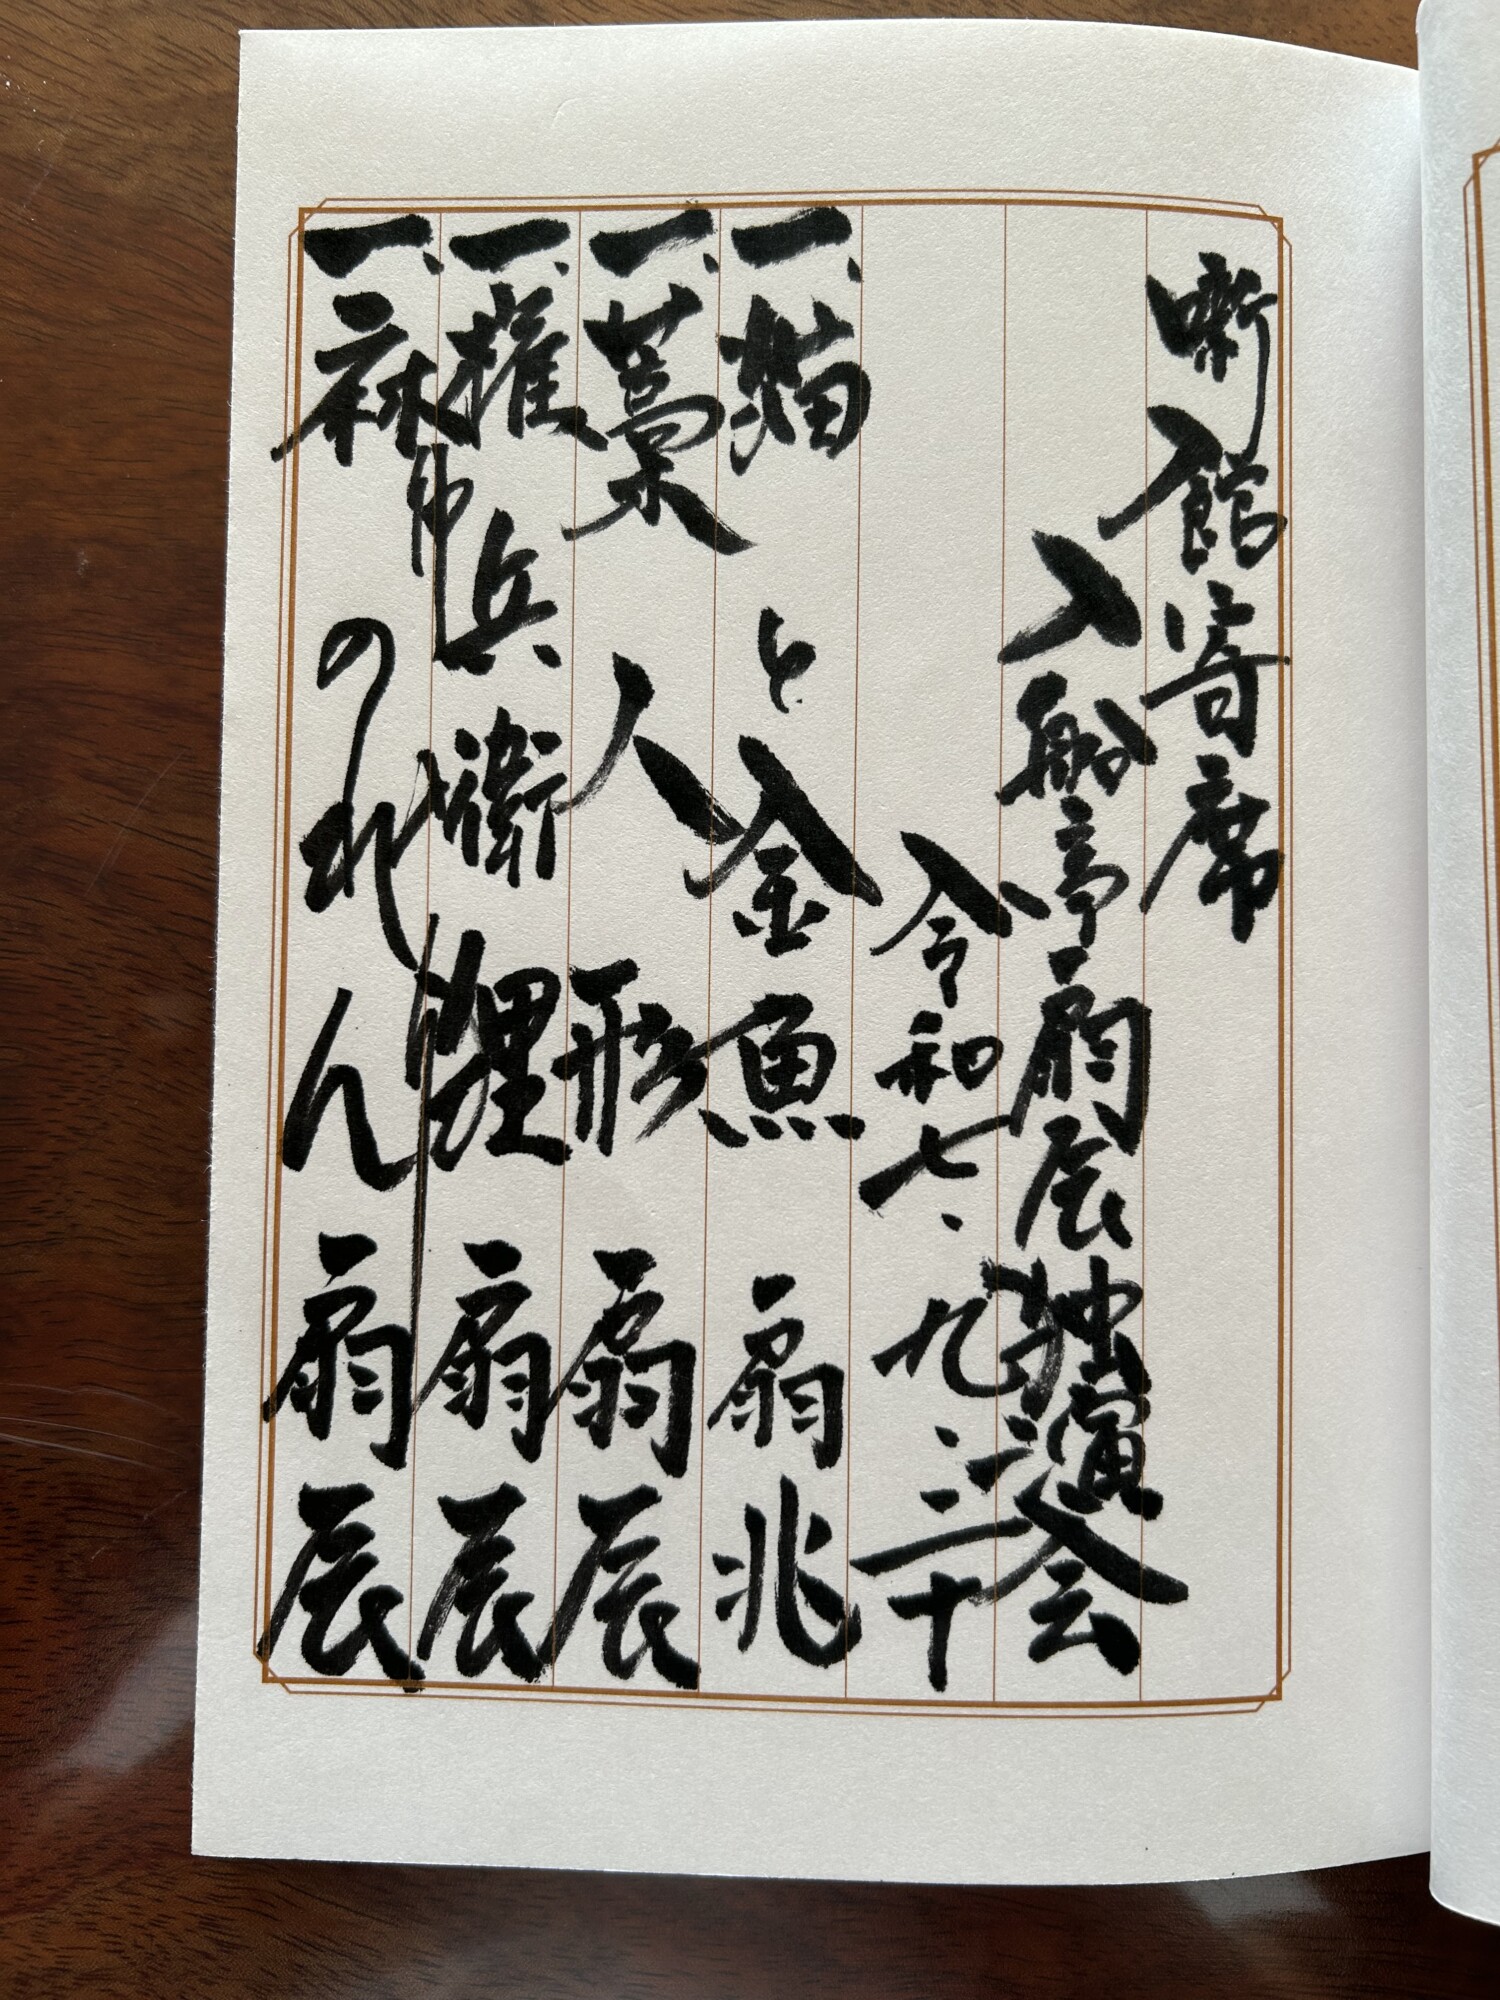 噺館寄席
入船亭扇辰独演会
令和七、九、二十
一、猫と金魚 扇兆
一、藁人形 扇辰
一、権兵衛狸 扇辰
一、麻のれん 扇辰